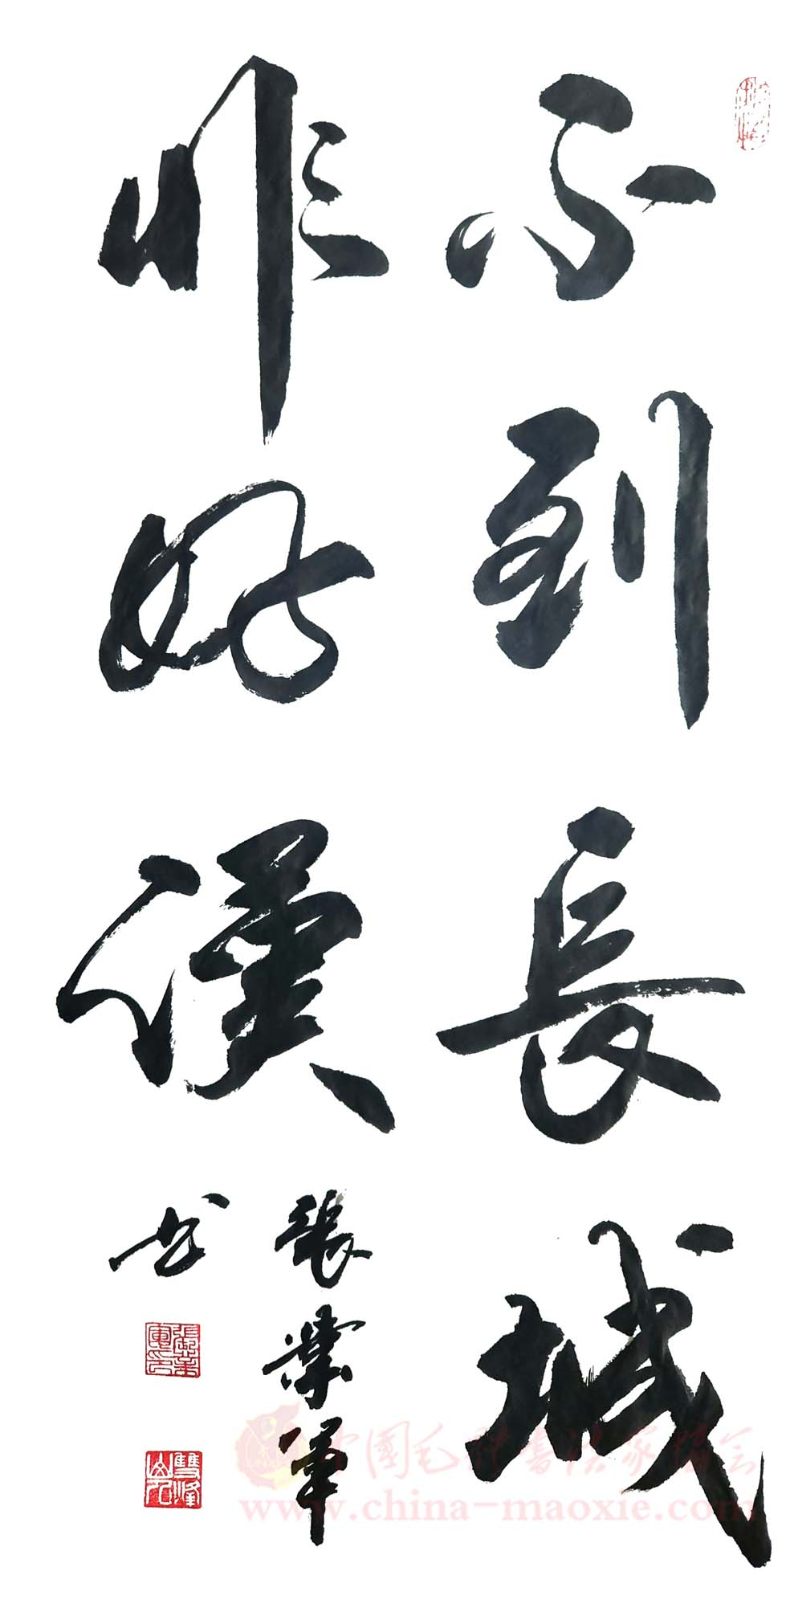 不到長城
非好漢
張業軍
书
張業軍印
雙峰山人
中國毛體書法家協會
www.china-maoxie.com